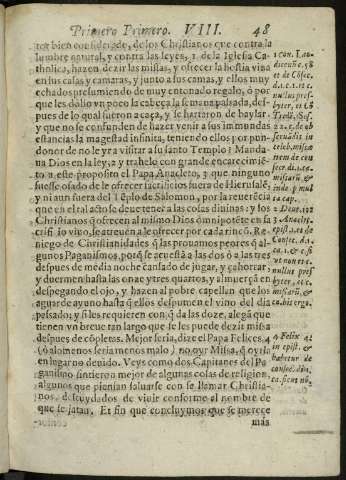 Primero Primero. VIII. 48
tor bien considerado, de los Christianos que contra la
lumbre natural, y contra las leyes, 1. de la Iglesia Ca-
tholica, hazen dezir las missas, y ofrecer la hostia viva
en sus camaras, y junto a sus camas, y ellos muy
echados presumiendo de muy entonado regalo, ó por
que les dolio vn poco la cabeça la semana passada, des-
pues de lo qual fueron a caça, y se hartaron de baylar,
y que no se confunden de hazer venir a sus immundas
estancias la magestad infinita, teniendo ellos por pun-
donor de no le yr a visitar a su santo Templo? Manda-
ua Dios en la ley, 2 y trahelo con grande encarecimié-
to a este proposito el Papa Anacleto, 3 que ninguno
fuesse osado de le ofrecer sacrificios fuera de Hierusalé,
y ni aun fuera del Téplo de Salomon, por la reuerécia
que en el tal acto se deue tener a las cosas diuinas: y los
Christianos q̃ ofrecen al mismo Dios omnipotéte en sa
crificio viuo, se atreuen a le ofrecer por cada rincó. Re
niego de Christianidades q̃ las prouamos peores q̃ al-
gunos Paganismos, porq̃ se acuestã a las dos ó a las tres
despues de media noche cansado de jugar, y cahorcar
y duermen hasta las onze y tres quartos, y almuerçã en
despegando el ojo, y hazen al pobre capellan que los
aguarde ayuno hasta q̃ ellos despumen el vino del dia
passado; y si les requieren con q̃ da las doze, alegã que
tienen vn breue tan largo que se les puede dezir missa
despues de cópletas. Mejor seria, dize el Papa Felice, 4
(ó alomenos seria menos malo) no oyr Missa, q̃ oyrla
en lugar no deuido. Veys como dos Capitanes del Pa
ganismo sintieron mejor de algunas cosas de religion,
algunos que piensan saluarse con se llamar Christia-
nos, descuydados de viuir conforme al nombre de
que se jatan. Et fin que concluymos que se merece
más
1 con. Lao-
dicense c. 58
et de Cósec.
d. 1. c. 1. 1
nullus pres-
byter, et Có
Trid. Ses.
2 2. c. de ob
seruádis in
celeb. missæ
nem de con
secr. di. 1. c.
missarũ &
inde p mul
ta cap.
2 Deut. 12
3 Anaclet.
epist. 1. et de
Consec. d. 1.
ca. 1. & c. si-
cut non & c.
nullus pres
byter, et c.
missarũ, &
ca. hic ergo.
4 Felix 4.
in epist. &
habetur de
consec. dist.
ca. sicut nõ.